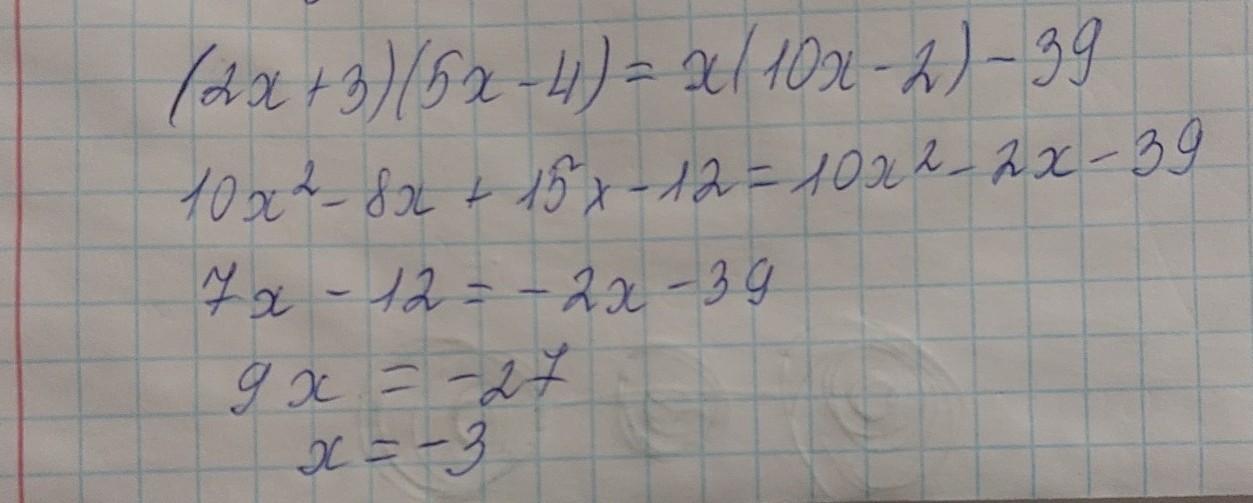 (2x+3)(5x-4)=x(10x-2)-39
10x²-8x+15x-12=10x²-2x-39
7x-12=-2x-39
9x=-27
x=-3